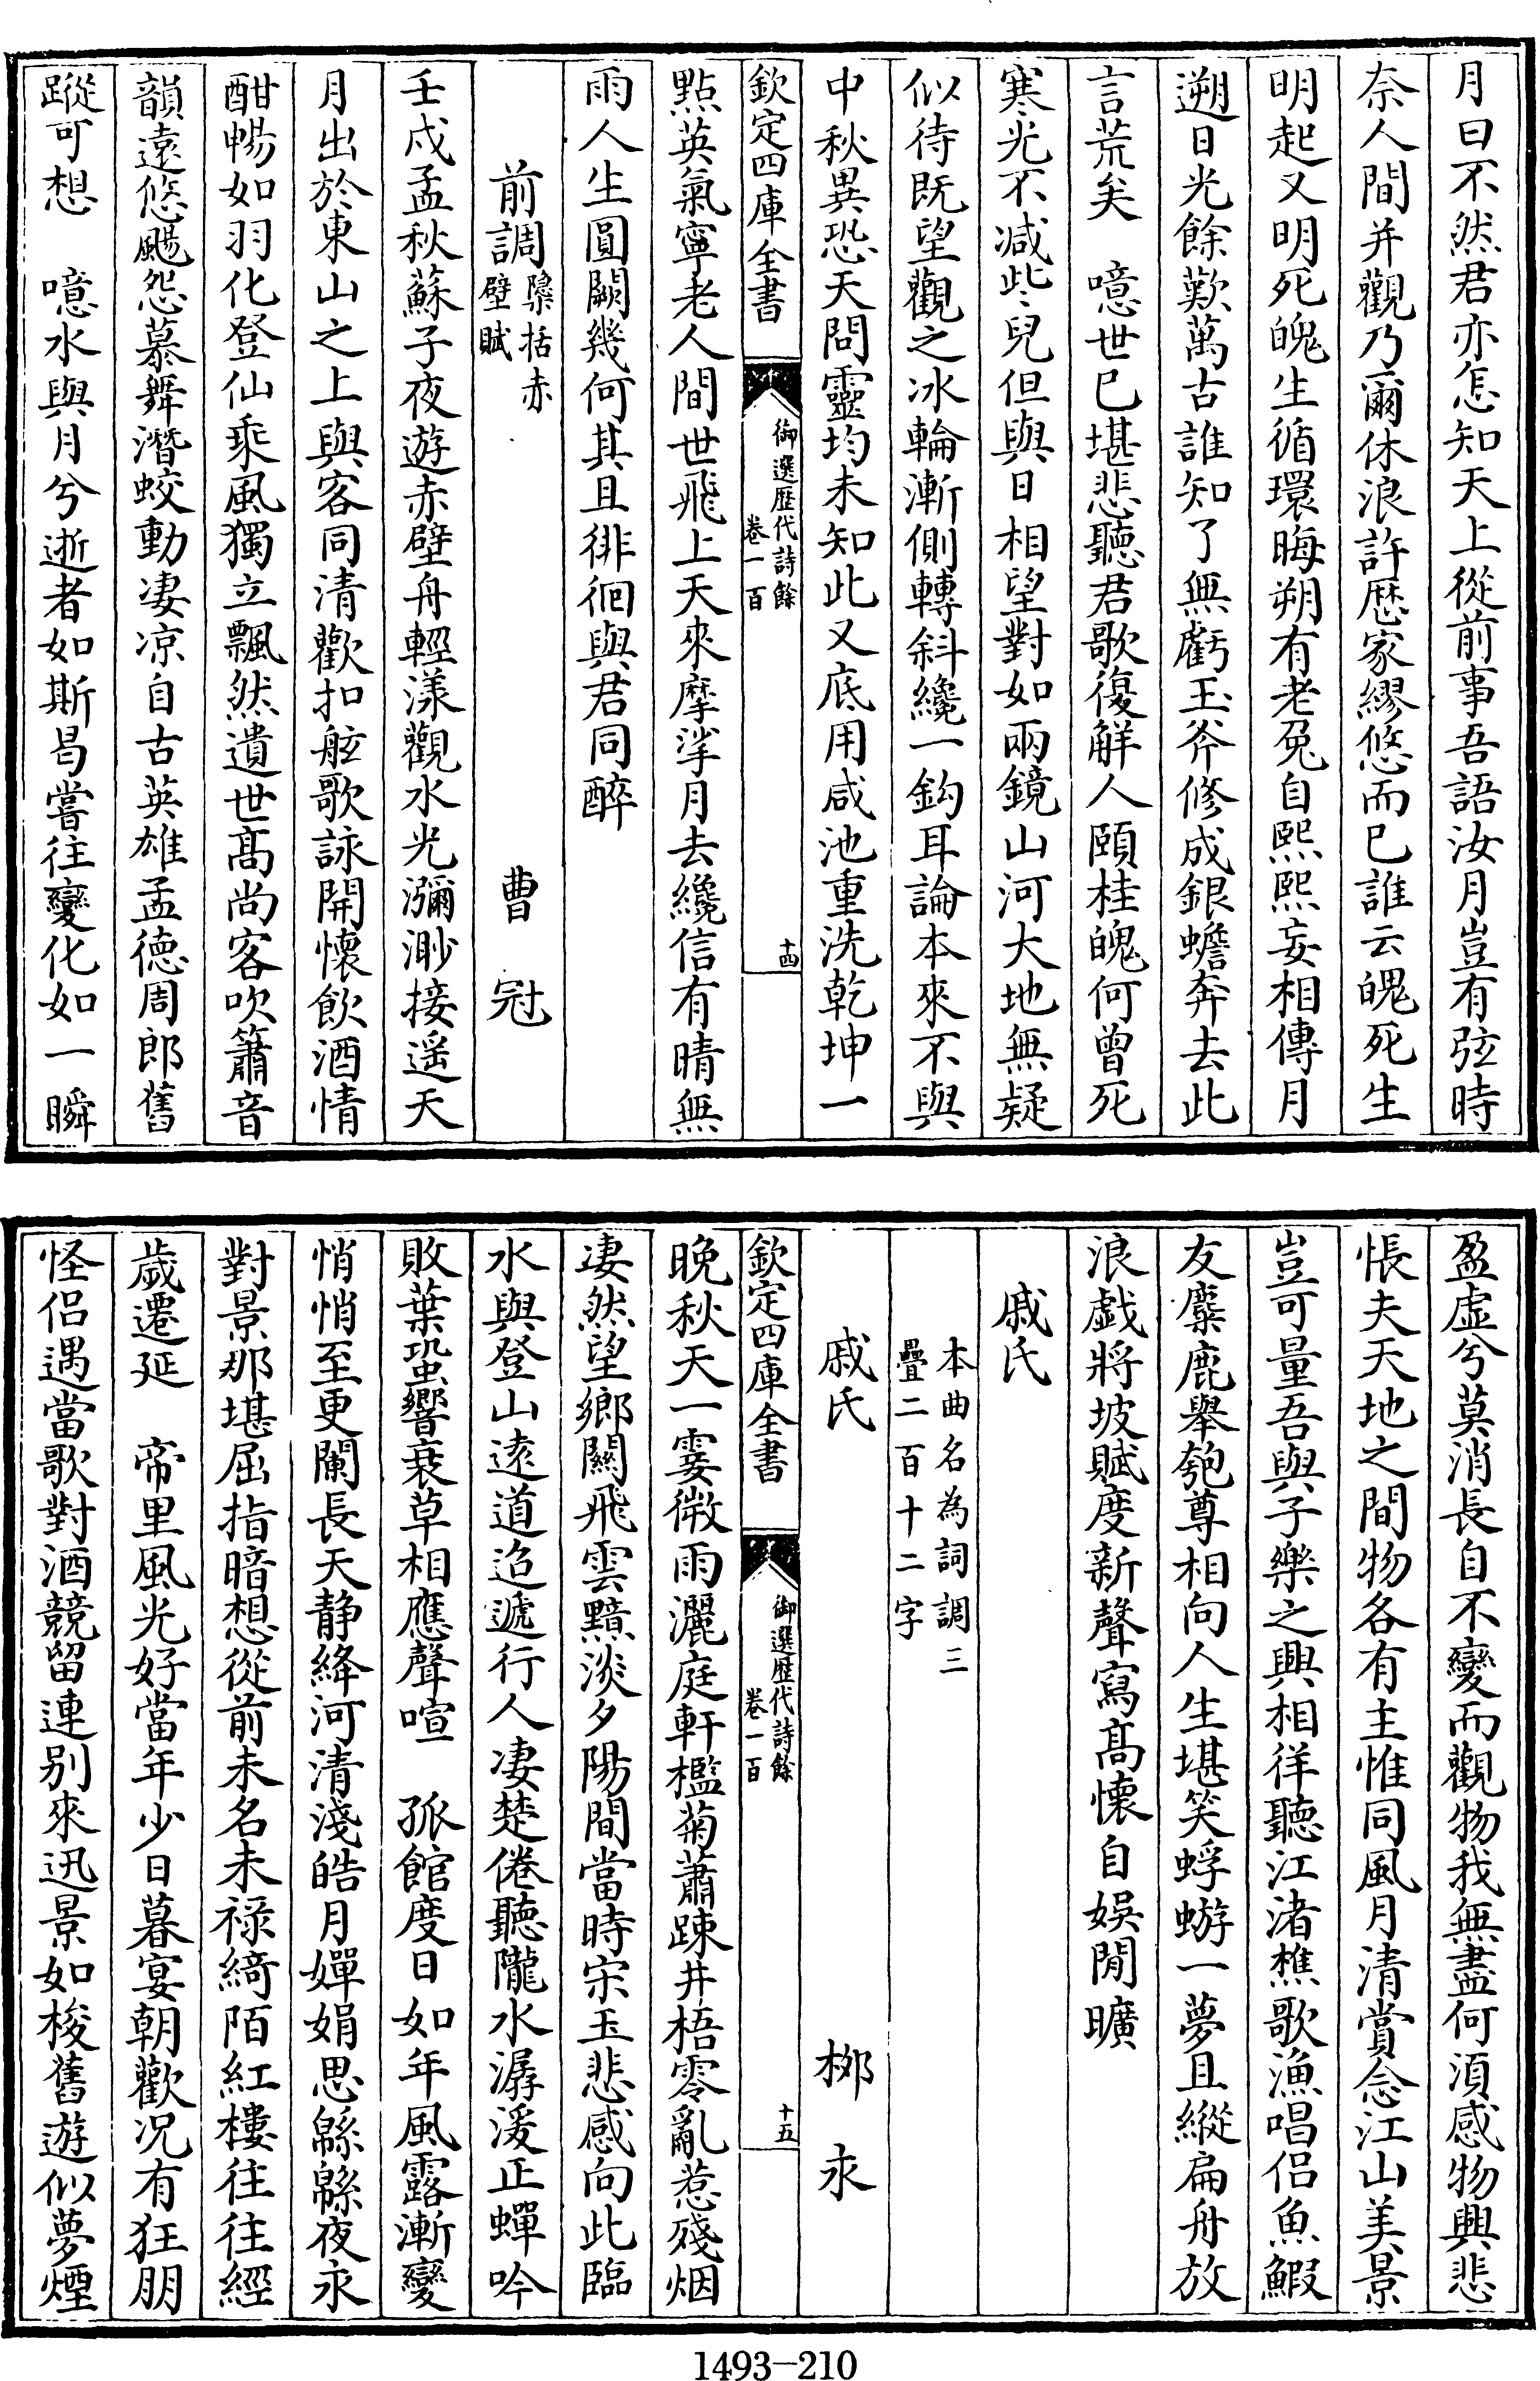 月曰不然君亦怎知天上從前事吾語汝月豈有弦時
奈人間并觀乃爾休浪許歴家繆悠而已誰云魄死生
明起又明死魄生循環晦朔有老兔自熙熙妄相傳月
遡日光餘歎萬古誰知了無虧玉斧修成銀蟾奔去此
言荒矣　噫世已堪悲聽君歌復解人頤桂魄何曾死
寒光不减些兒但與日相望對如兩鏡山河大地無疑
似待既望觀之冰輪漸側轉斜纔一鈎耳論本來不與
中秋異恐天問靈均未知此又底用咸池重洗乾坤一
欽定四庫全書　御選歴代詩餘卷一百　十四
點英氣寧老人間世飛上天來摩挲月去纔信有晴無
雨人生圓闕幾何其且徘徊與君同醉
前調檃括赤壁賦　曹冠
壬戌孟秋蘇子夜遊赤壁舟輕漾觀水光瀰渺接遥天
月出於東山之上與客同清歡扣舷歌詠開懷飲酒情
酣暢如羽化登仙乘風獨立飄然遺世髙尚客吹簫音
韻遠悠颺怨慕舞潛蛟動凄凉自古英雄孟德周郎舊
蹤可想　噫水與月兮逝者如斯曷嘗往變化如一瞬
盈虚兮莫消長自不變而觀物我無盡何須感物興悲
悵夫天地之間物各有主惟同風月清賞念江山美景
豈可量吾與子樂之興相徉聽江渚樵歌漁唱侣魚鰕
友麋鹿舉匏尊相向人生堪笑蜉蝣一夢且縱扁舟放
浪戲將坡賦度新聲寫髙懷自娛閒曠
戚氏
本曲名為詞調三
疊二百十二字
戚氏　栁永
欽定四庫全書　御選歴代詩餘卷一百　十五
晚秋天一霎微雨灑庭軒檻菊蕭踈井梧零亂惹殘烟
凄然望鄉關飛雲黯淡夕陽間當時宋玉悲感向此臨
水與登山逺道迢遞行人凄楚倦聽隴水潺湲正蟬吟
敗葉蛩響衰草相應聲喧　孤館度日如年風露漸變
悄悄至更闌長天静絳河清淺皓月嬋娟思緜緜夜永
對景那堪屈指暗想從前未名未禄綺陌紅樓往往經
歲遷延　帝里風光好當年少日暮宴朝歡况有狂朋
怪侣遇當歌對酒競留連别來迅景如梭舊遊似夢煙
1493-210